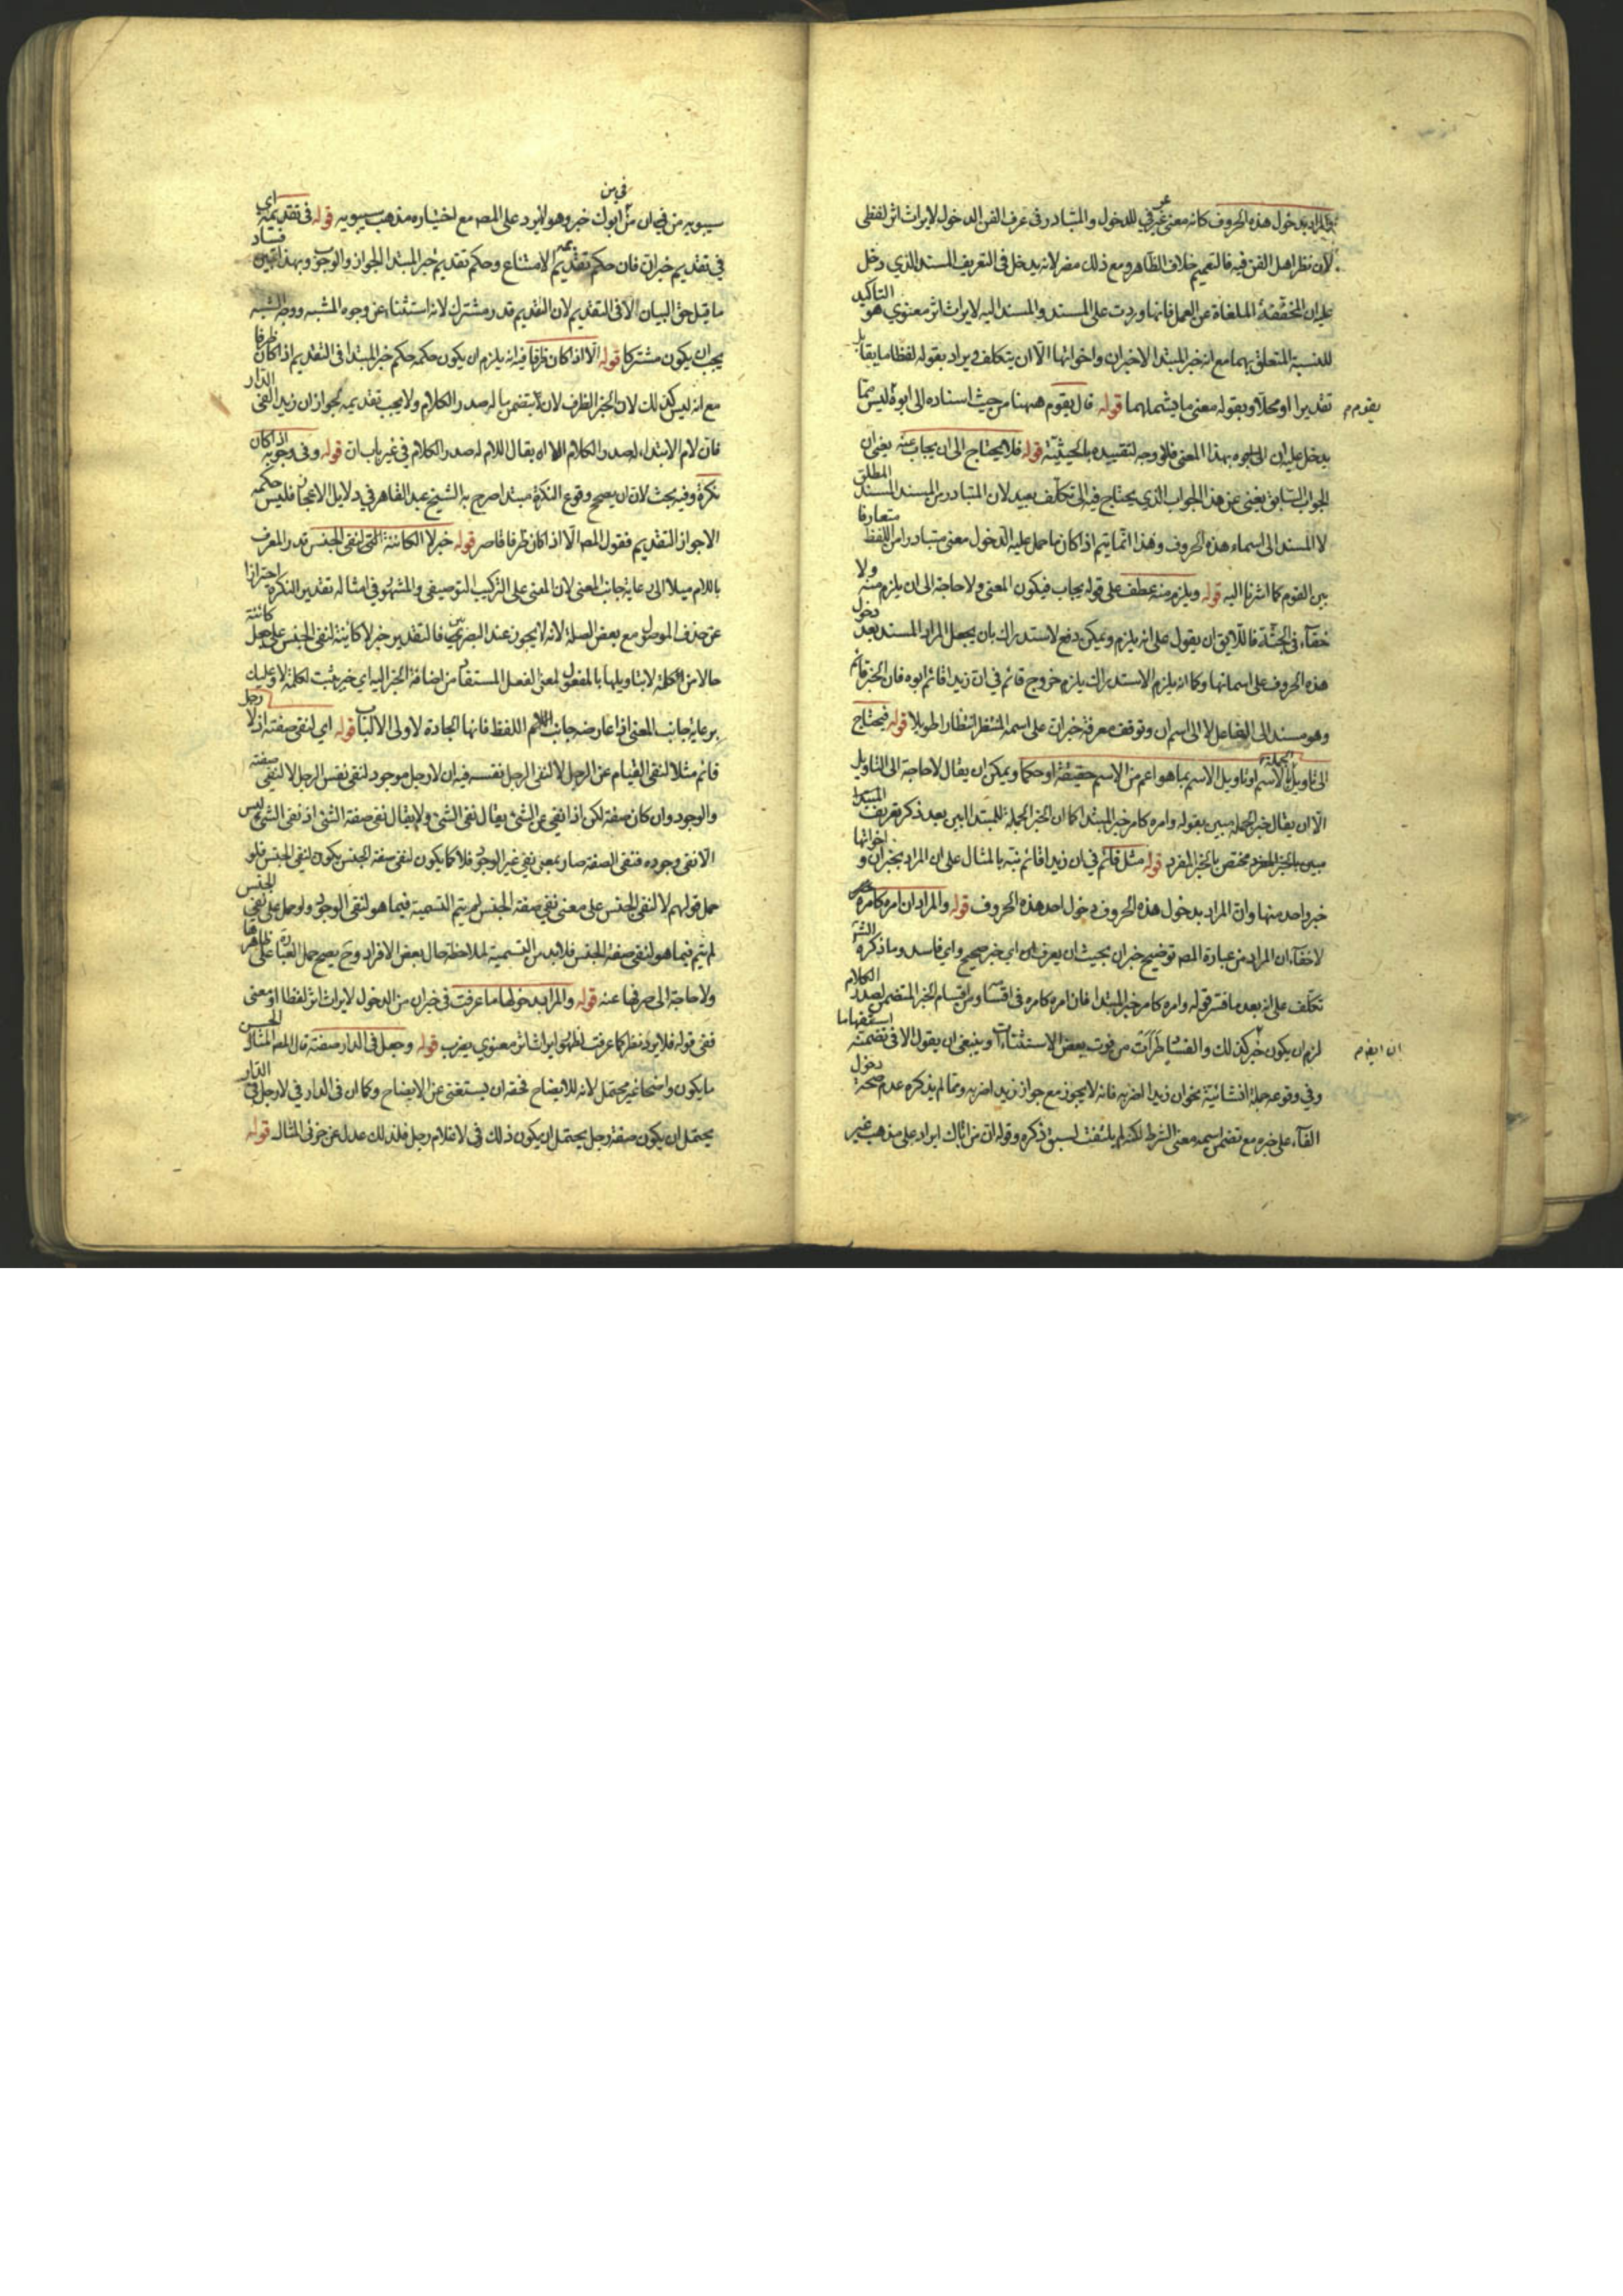 والمراد بدخول هذه الحروف كانه معنى غير عرفي للدخول والمتبادر في عرف الفن الدخول لايراث اثر لفظي
لان نظر اهل الفن فيه فالتعميم خلاف الظاهر ومع ذلك مضر لانه يدخل في التعريف المسند الذي دخل
عليه ان المخففة الملغاة عن العمل فانها وردت على المسند والمسند اليه لايراث اثر معنوي هو التاكيد
للنسبة المتعلق بهما مع انه خبر المبتدا لا خبر ان واخواتها الا ان يتكلف ويراد بقوله لفظا ما يقابل
تقديرا او محلا وبقوله معنى ما يشملهما قوله فان يقوم ههنا من حيث اسناده الى ابوه ليس مما
يقوم م
يدخل عليه ان الى ابوه بهذا المعنى فلا وجه لتقييده بالحيثية قوله فلا يحتاج الى ان يجاب عنه يعني ان
الجواب السابق يغني عن هذا الجواب الذي يحتاج فيه الى تكلف بعيد لان المتبادر من المسند المسند المطلق
لا المسند الى اسماء هذه الحروف وهذا انما يتم اذا كان ما حمل عليه الدخول معنى متبادرا من اللفظ متعارفا
بين القوم كما اشرنا اليه قوله ويلزم منه عطف على قوله يجاب فيكون المعنى ولا حاجة الى ان يلزم منه ولا
خفاء في فاللايق ان يقول على انه يلزم ويمكن دفع الاستدراك بان يجعل المراد المسند بعد دخول
هذه الحروف على اسمائها وكما انه يلزم الاستدراك يلزم خروج قائم في ان زيدا قائم ابوه فان الخبر قائم
وهو مسند الى الفاعل لا الى اسم ان وتوقف معرفة خبر ان على اسمه المنتظر انتظارا طويلا قوله فيحتاج
الى تاويل الجملة بالاسم او تاويل الاسم بما هو اعم من الاسم حقيقة او حكما ويمكن ان يقال لا حاجة الى التاويل
الا ان يقال خبر الجملة مبين بقوله وامره كامر خبر المبتدا كما ان الخبر الجملة للمبتدا ابين بعد ذكر تعريف المبتدا
مبين بالخبر المفرد مختص بالخبر المفرد قوله مثل قائم في ان زيدا قائم نبه بالمثال على ان المراد بخبر ان واخواتها
خبر واحد منها وان المراد بدخول هذه الحروف دخول احد هذه الحروف قوله والمراد ان امره كامره
لا خفاء ان المراد من عبارة المص توضيح خبر ان بحيث ان يعرف ان اي خبر صحيح واي فاسد وما ذكره الش
تكلف على انه بعد ما فسر قوله وامره كامر خبر المبتدا فان امره كامره في اقسامه ومن اقسام الخبر المتضمن لصدر الكلام
لزم ان يكون خبر كذلك والفساد من فوت بعض الاستثناءات وينبغي ان يقول الا في تضمنه استفهاما
وفي وقوعه جملة انشائية نحو ان زيدا اضربه فانه لا يجوز مع جواز زيد اضربه ومما لم يذكره عدم صحة دخول
الفاء على خبره مع تضمن اسمه معنى الشرط لكنه لم يلتفت لسبق ذكره وقوله ان من اتاك ايراد على مذهب غير
سيبويه من في ان من ابوك خبر وهو لا يرد على المص مع اختياره مذهب سيبويه قوله في تقديمه اي
في تقديم خبر ان فان حكم تقديمه الامتناع وحكم تقديم خبر المبتدا الجواز والوجوب وبهذا تبين فساد
ما قيل حق البيان الا في التقديم لان التقديم قدر مشترك لانه استثناء عن وجوه المشبه ووجه الشبه
يجب ان يكون مشتركا قوله الا اذا كان ظرفا فيه انه يلزم ان يكون حكمه حكم خبر المبتدا في التقديم اذا كان ظرفا
مع انه ليس كذلك لان الخبر الظرف لان لا يتضمن ما له صدر الكلام ولا يجب تقديمه لجواز ان زيدا لفي الدار
فان لام الابتداء لصدر الكلام الا ان يقال اللام له صدر الكلام في غير باب ان قوله وفي وجوبه اذا كان
نكرة وفيه بحث لان ان يصحح وقوع النكرة مبتدا صرح به الشيخ عبد القاهر في دلايل الاعجاز فليس حكمه
الا جواز التقديم فقول المص الا اذا كان ظرفا قاصر قوله خبر لا الكائنة التي لنفي الجنس قدر المعرف
باللام ميلا الى رعاية جانب المعنى لان المعنى على التركيب التوصيفي والمشهور في امثاله تقدير النكرة احترازا
عن حذف الموصول مع بعض الصلة لانه لا يجوز عند البصريين فالتقدير خبر لا كائنة لنفي الجنس على جعل كائنة
حالا من الكلمة لا بتاويلها بالمفعول لمعنى الفعل المستفاد من اضافة الخبر اليه اي خبر يثبت لكلمة لا وعليك
برعاية جانب المعنى اذا عارضه جانب اللفظ فانها الجادة لاولى الالباب قوله اي لنفي صفته اذ لا رجل
قائم مثلا لنفي القيام عن الرجل لا لنفي الرجل نفسه فيه ان لا رجل موجود لنفي نفس الرجل لا لنفي صفته
والوجود وان كان صفة لكن اذا نفي عن الشئ يقال نفي الشئ ولا يقال نفي صفة الشئ اذ نفي الشئ ليس
الا نفي وجوده فنفي الصفة صار بمعنى نفي غير الوجود فلا كما يكون لنفي صفة الجنس يكون لنفي الجنس فلو
حمل قولهم لا لنفي الجنس على معنى نفي صفة الجنس لم يتم التسمية فيما هو لنفي الوجود ولو حمل على نفي الجنس
لم يتم فيما هو لنفي صفة الجنس فلا بد من التسمية لملاحظة حال بعض الافراد وح يصح حمل العبارة على ظاهرها
ولا حاجة الى صرفها عنه قوله والمراد بدخولها ما عرفت في خبر ان من الدخول لايراث اثر لفظا او معنى
ففي قوله فلا يرد نظر كما عرفت لظهور ايراث اثر معنوي بضرب قوله وجعل في الدار صفة قال المص المثال الحسن
ما يكون واضحا غير محتمل لانه للايضاح فحقه ان يستغني عن الايضاح وكما ان في الدار في لا رجل في الدار
يحتمل ان يكون صفة رجل يحتمل ان يكون ذلك في لا غلام رجل فلذلك عدل عن المثال قوله